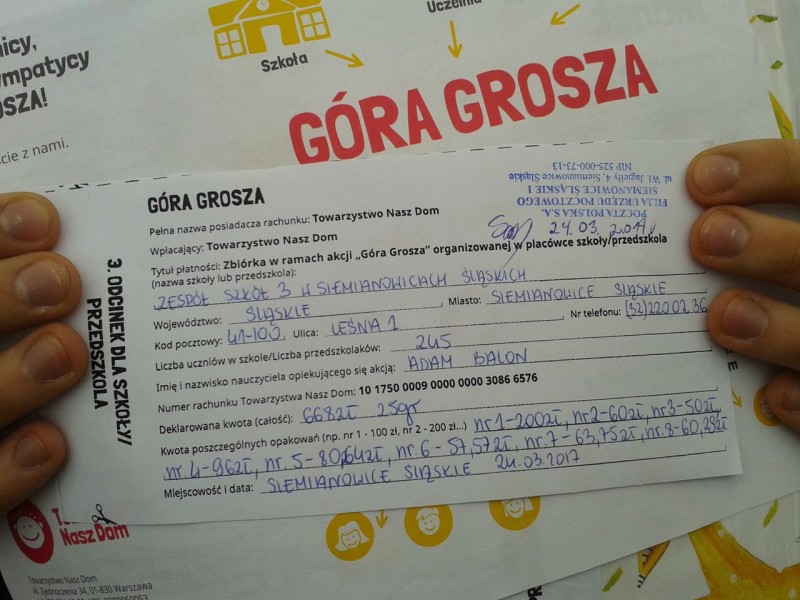 nicy,
mpatycy
OSZA!
cie z nami.
Szkoła
Uczelnia
GÓRA GROSZA
3. ODCINEK DLA SZKOŁY/
PRZEDSZKOLA
GÓRA GROSZA
POCZTA POLSKA S.A.
FILIA URZĘDU POCZTOWEGO
SIEMIANOWICE ŚLĄSKIE 1
ul. Wł. Jagiełły 4, Siemianowice Śląskie
NIP 525-000-73-13
24.03.2017
Pełna nazwa posiadacza rachunku: Towarzystwo Nasz Dom
Wpłacający: Towarzystwo Nasz Dom
Tytuł płatności: Zbiórka w ramach akcji „Góra Grosza” organizowanej w placówce szkoły/przedszkola
(nazwa szkoły lub przedszkola):
ZESPÓŁ SZKÓŁ 3 W SIEMIANOWICACH ŚLĄSKICH
Województwo: ŚLĄSKIE Miasto: SIEMIANOWICE ŚLĄSKIE
Kod pocztowy: 41-100 Ulica: LEŚNA 1 Nr telefonu: (32)2200236
Liczba uczniów w szkole/Liczba przedszkolaków: 245
Imię i nazwisko nauczyciela opiekującego się akcją: ADAM BALON
Numer rachunku Towarzystwa Nasz Dom: 10 1750 0009 0000 0000 3086 6576
Deklarowana kwota (całość): 668zł 25gr
Kwota poszczególnych opakowań (np. nr 1 - 100 zł, nr 2 - 200 zł...) nr 1-200zł, nr 2-60zł, nr 3-50zł,
nr. 4-96zł, nr. 5-80,64zł, nr. 6-57,57zł, nr. 7-63,75zł, nr. 8-60,29zł
Miejscowość i data: SIEMIANOWICE ŚLĄSKIE 24.03.2017
Nasz Dom
Towarzystwo Nasz Dom
Al. Zjednoczenia 34, 01-830 Warszawa